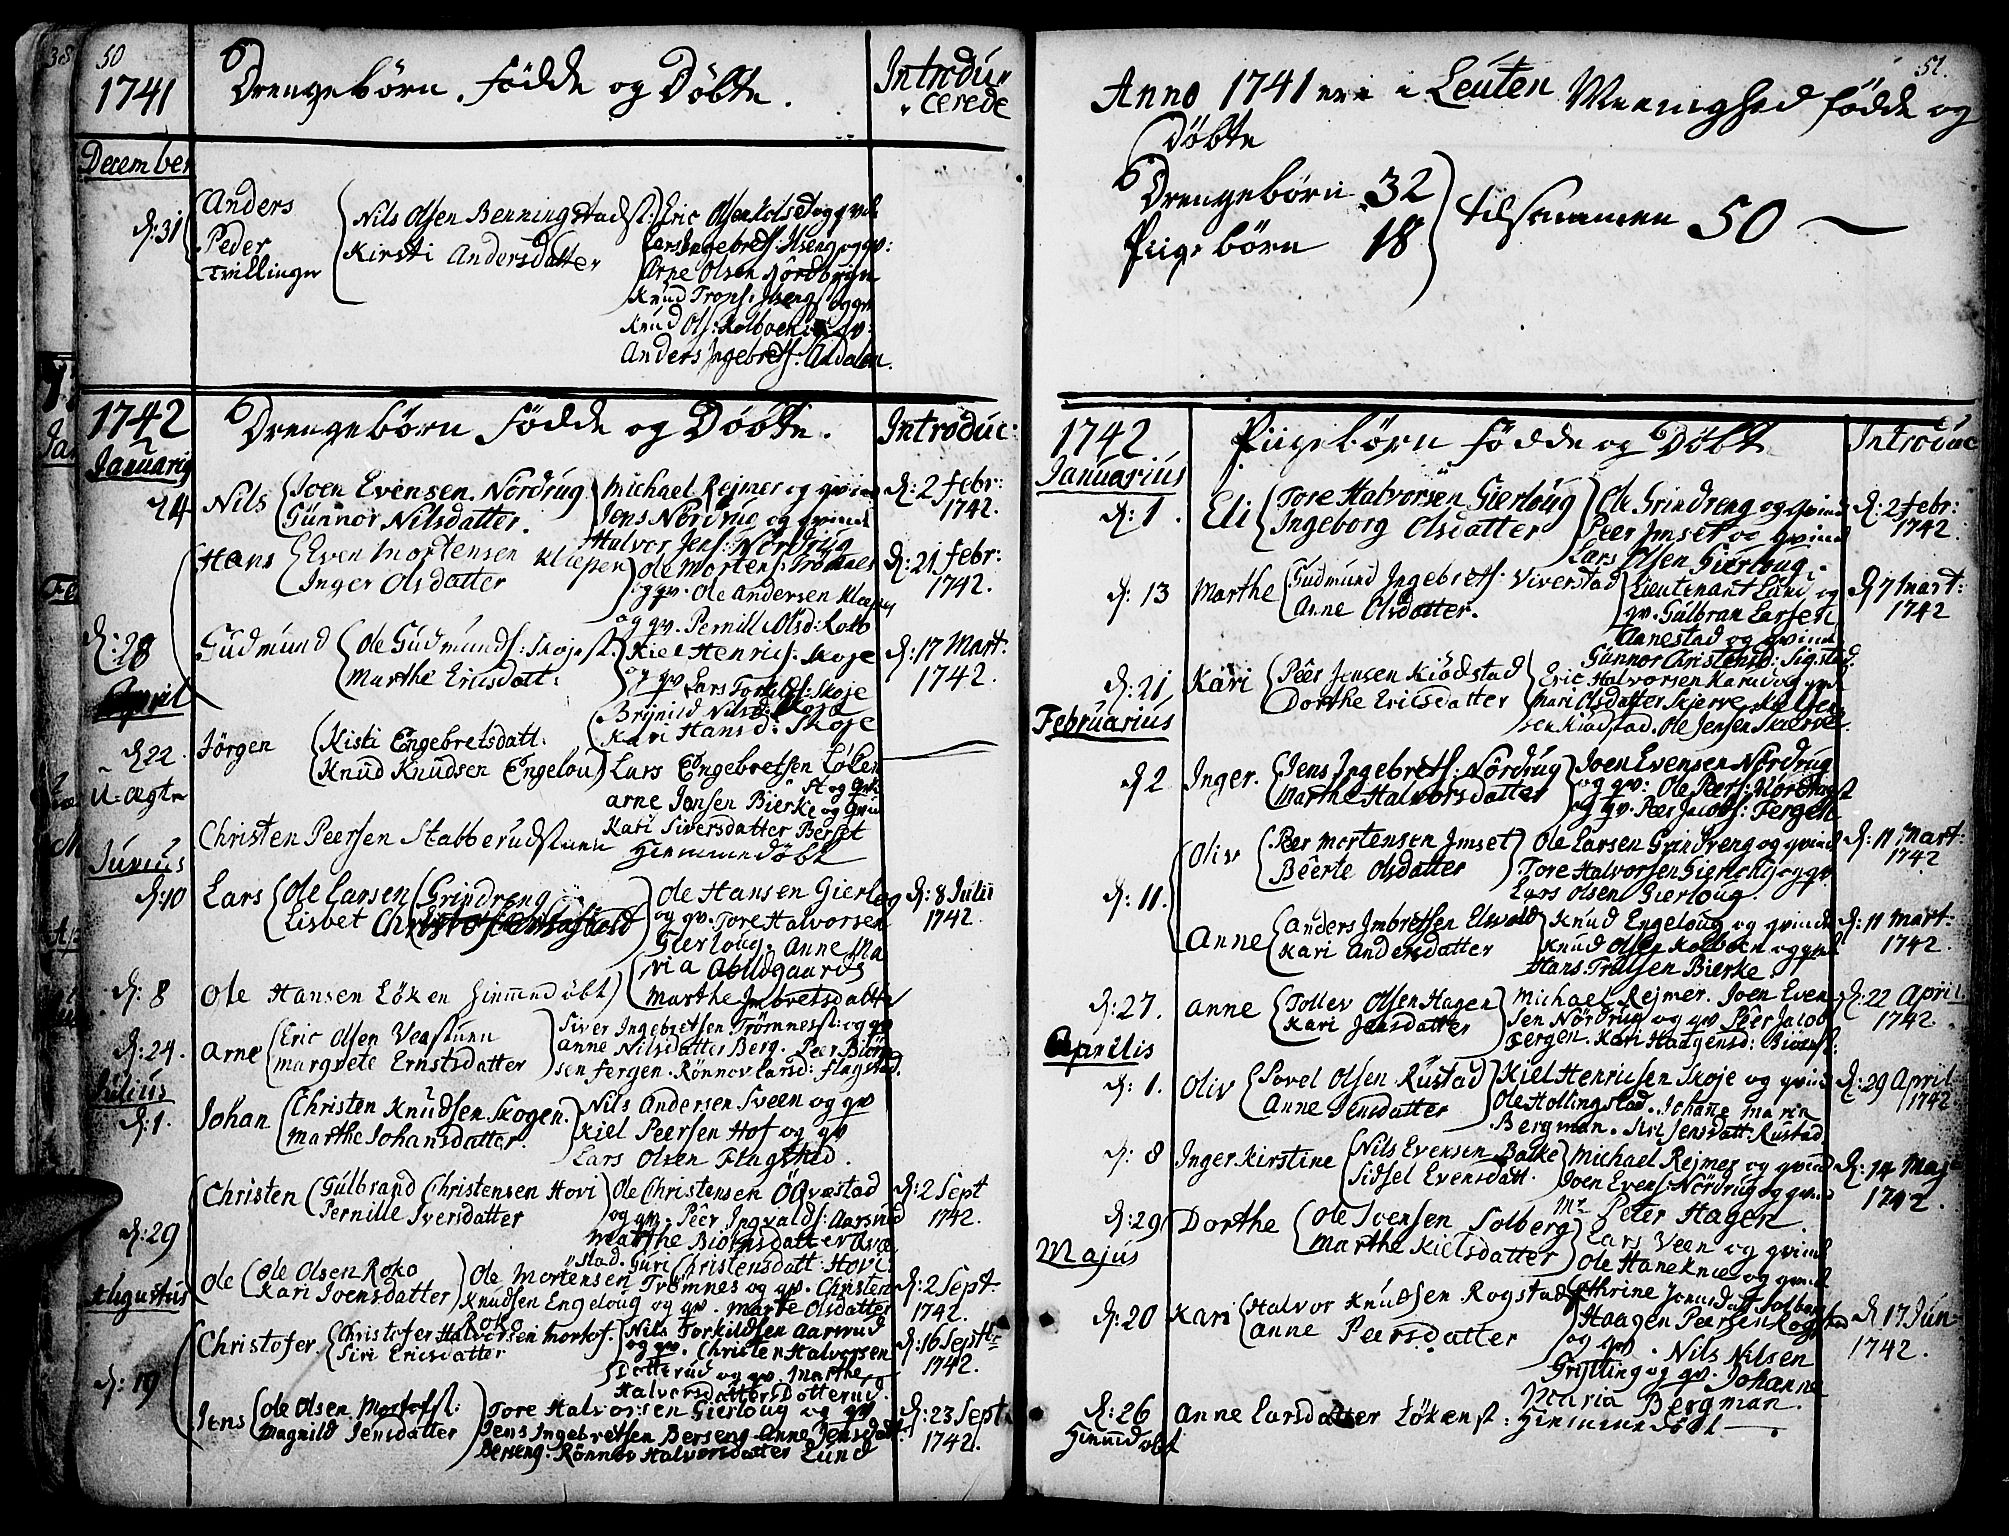 50
1741
Drengebørn. fødde og Døbte.
Introdu-
cerede
December
d: 31
Anders
Peder
Tvillinger
Nils Olsen Benningstadst:
Kirsti Andersdatter
Eric Olsen
Lars Ingebretss: Ilseng og qv:
Arne Olsen Nordbygn
Knud Trons: Ilseng og qv
Knud Ols: Kolboen
Anders Ingebrets: Aadalen.
1742
Drengebørn fødde og Døbte.
Introduc:
Januarius
24
Nils
Joen Evensen Nordrug
Gunnor Nilsdatter.
Michael Rejmer og qvind
Jens Nordrug og qvind
Halvor Jens: Nordrug
d: 2 Febr:
1742.
Hans
Even Mortensen Klæpen
Inger Olsdatter
Ole Mortens: Trømnes
og qv. Ole Andersen Klæpen
og qv. Pernill Olsd: Kolb
d: 21 Febr:
1742.
d: 28
Gudmund
Ole Gudmunds: Skojest.
Marthe Ericsdatt:
Kiel Henrics: Skoje
og qv Lars Torkilds: Skoje
Brynild Nilsd: Skoje
Kari Hansd: Skoje
d: 17 Mart:
1742.
April
d 22
u-ægte
Jörgen
Kisti Engebretsdatt.
Knud Knudsen Engelou
Lars Engebretsen Løken
st og qv.
Arne Jonsen Bierke og qvin
Kari Siversdatter Berset
Christen Peersen Stabberudstuen
Hiemmedøbt
Junius
d: 10
Lars
Ole Larsen Grindreng
Lisbet
Ole Hansen Gierlog
og qv. Tore Halvorsen
Gierloug. Anne Ma
ria Abildgaards
Marthe Imbretsdatter
d: 8 Julii
1742.
d: 8
Ole Hansen Løken Hiemmedøbt
d: 24.
Arne
Eric Olsen Veastuen
Margrete Ernstsdatter
Siver Ingebretsen Trømnesst: og qv
Anne Nilsdatter Berg. Peer Biørn
sen Fergen. Rønnov Larsd: Flagstad.
Julius
d: 1.
Johan
Christen Knudsen Skogen
Marthe Johansdatter.
Nils Andersen Sveen og qv
Kiel Peersen Hof og qv
Lars Olsen Flagstad.
d: 29
Christen
Gulbrand Christensen Hovi
Pernille Iversdatter
Ole Christensen Øqvæstad
og qv. Peer Ingvalds: Aarsrud
Marthe Biørnsdatter Øqvæ
stad. Guri Christensdatt: Hovi.
d: 2 Sept
1742.
Augustus
Ole
Ole Olsen Roko
Kari Joensdatter
Ole Mortensen Trømnes og qv. Christen
Knudsen Engeloug og qv. Marte Olsdatter
Roko
d: 2 Sept:
1742.
d: 19
Christofer
Christofer Halvorsen Mortof.
Siri Ericsdatter
Nils Torkildsen Aarsrud
og qv. Christen Halvorsen
Dotterud og qv. Marthe
Halvorsdatter Dotterud.
d: 16 Septbr:
1742.
Jens
Ole Olsen Mortofst:
Magnild Jensdatter
Tore Halvorsen Gierloug og qv
Jens Ingebretsen Berseng. Anne Jensdatt
Berseng. Rønnov Halvorsdatter Lund
d: 23 Sept:
1742.
51.
Anno 1741 ere i Leuten Meenighed fødde og
Døbte
Drengebørn 32
Pigebørn 18
tilsammen 50
1742
Pigebørn fødde og Døbt
Introduc
Januarius
d: 1.
Eli
Tore Halvorsen Gierloug
Ingeborg Olsdatter
Ole Grindreng og qvind
Peer Imset og qvind
Lars Olsen Gierloug.
d: 2 Febr:
1742.
d: 13
Marthe
Gudmund Ingebrets: Viverstad
Anne Olsdatter.
Lieutenant Land og
qv. Gulbran Larsen
Aanestad og qvind
Gunnor Christensd: Sigstad.
d 7 Mart:
1742
d: 21
Kari
Peer Jensen Kiødstad
Dorthe Ericsdatter
Eric Halvorsen
Mari Olsdatter Skierve
sen Kiødstad. Ole Jensen Skierve.
Februarius
d 2
Inger.
Jens Ingebrets: Nordrug
Marthe Halvorsdatter
Joen Evensen Nordrug
og qv: Ole Peers: Nordhagst
og qv. Peer Jacobs: Fergen
d: 11.
Oliv
Peer Mortensen Imset
Beerte Olsdatter
Ole Larsen Grindreng og qvind
Tore Halvorsen Gierloug og qv
Lars Olsen Gierloug.
d: 11 Mart:
1742
Anne
Anders Imbretsen Elvold
Kari Andersdatter
Knud Engeloug og qvinde
Knud Olsen Kolboen og qvind
Hans Trulsen Bierke.
d: 11 Mart:
1742.
d: 27.
Anne
Tollev Olsen Hagen
Kari Jensdatter
Michael Rejmer. Joen Even
sen Nordrug og qv Peer Jacob
Fergen. Kari Haagensd:
d: 22 April
1742.
Aprilis
d: 1.
Oliv
Sovel Olsen Rustad
Anne Jensdatter
Kiel Henricsen Skoje og qvind
Ole Hollingstad. Johanne Maria
Bergman. Siri Jensdatt: Rustad
d: 29 April
1742.
d: 8
Inger Kirstine
Nils Evensen Bakke
Sidsel Evensdatt.
Michael Rejmer og qvind
Joen Evens: Nordrug og qvind
Mr Peter Hagen.
d: 14 Maje
1742.
d: 29
Dorthe
Ole Svensen Solberg
Marthe Kielsdatter
Lars Veen og qvind
Ole Haneknæ og qvind
Majus
d: 20
Kari
Halvor Knudsen Rogstad
Anne Peersdatter
Cathrine Jonsdatt Solberg
Haagen Peersen Rogstad
og qv. Nils Nilsen
Grytting og qv. Johanne
Maria Bergman.
d 17 Jun
1742.
d: 26
Hiemmedøbt
Anne Larsdatter Løkenst: Hiemmedøbt